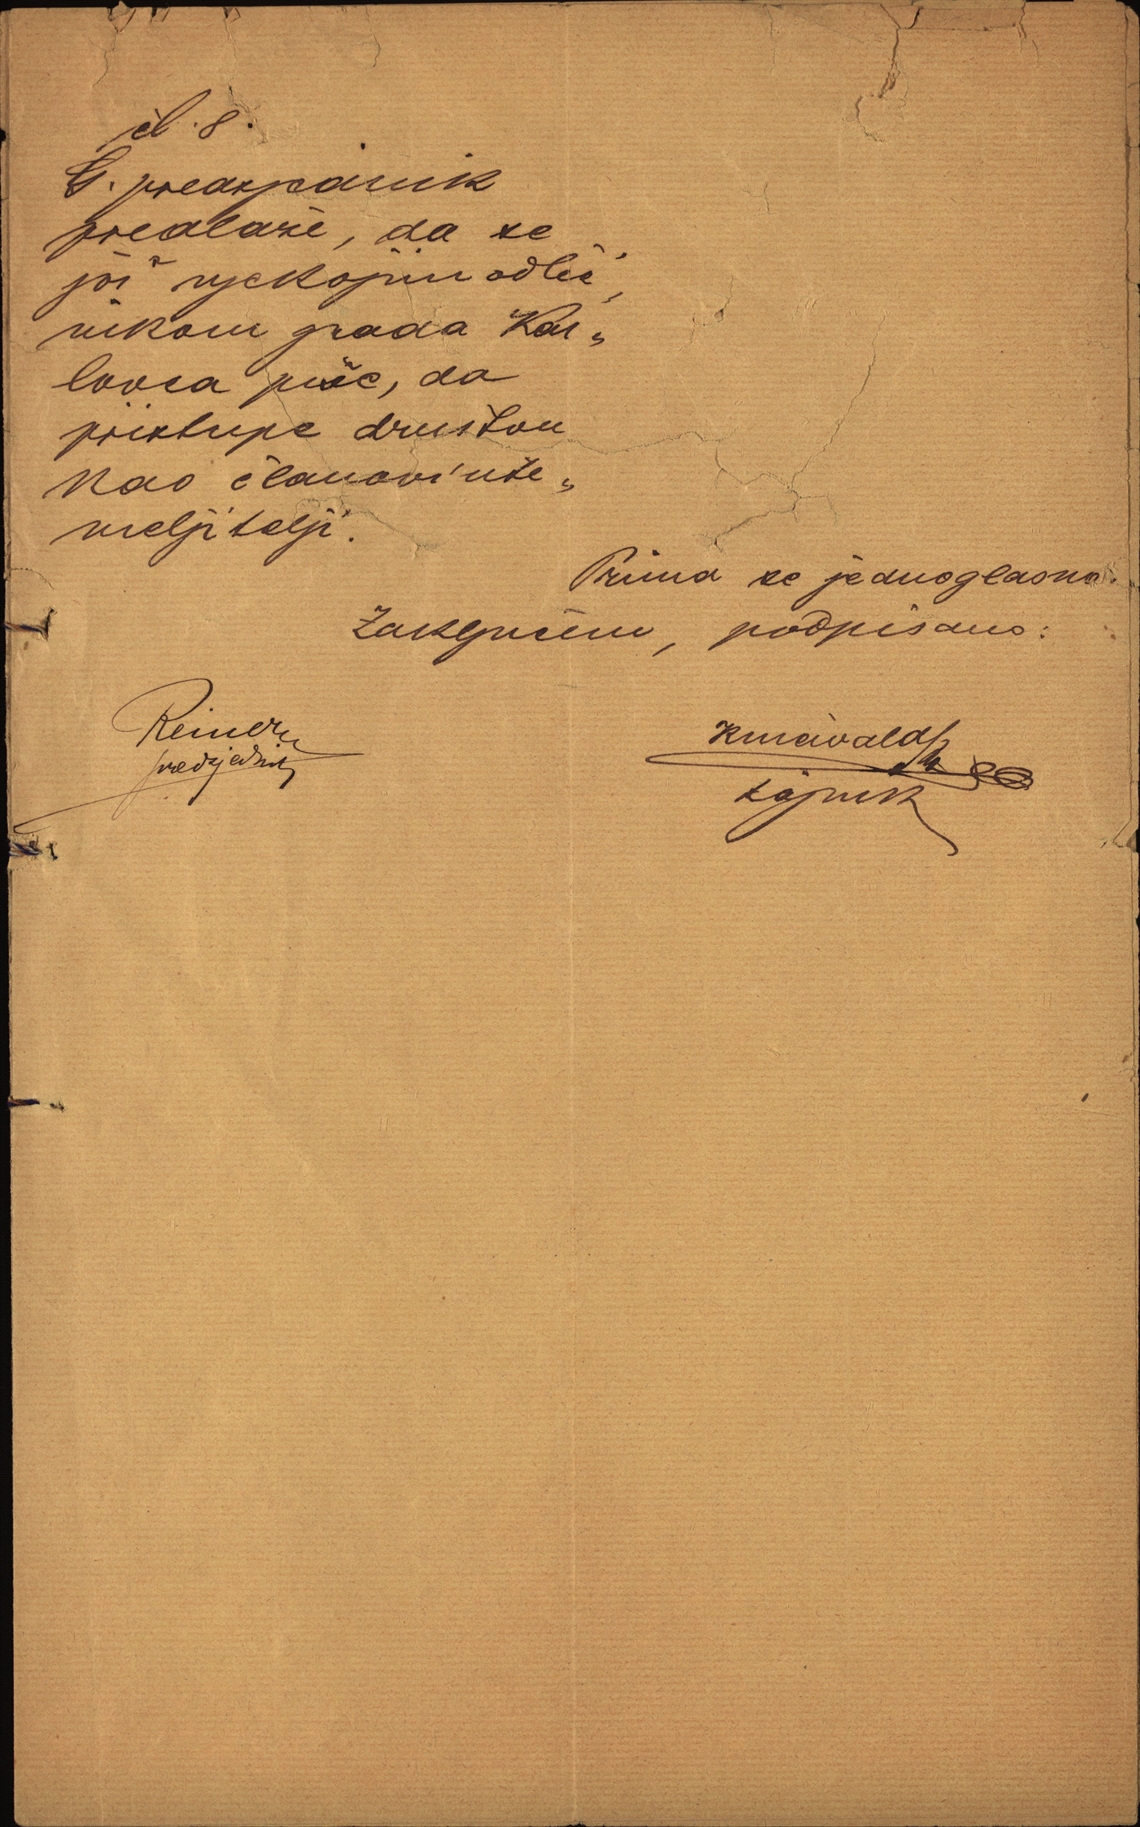 čl. 8.
G. predsjednik
predlaže, da se
još njekojim odlič„
nikom grada Kar„
lovca piše, da
pristupe društvu
kao članovi ute„
meljitelji.
Prima se jednoglasno.
Zaključeno, podpisano:
Reiner
predsjednik
tajnik